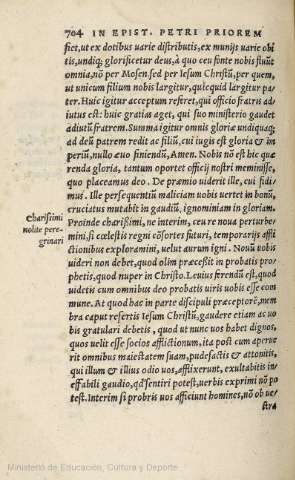 704 IN EPIST. PETRI PRIOREM
fiet, ut ex dotibus uarie distributis, ex munijs uarie obi
tis, undiq; glorificetur deus, à quo ceu fonte nobis fluũt
omnia, nõ per Mosen, sed per Iesum Christũ, per quem,
ut unicum filium nobis largitur, quicquid largitur pa
ter. Huic igitur acceptum referet, qui officio fratris ad
iutus est: huic gratias aget, qui suo ministerio gaudet
adiutũ fratrem. Summa igitur omnis gloriæ undiquaq;
ad deũ patrem redit ac filiũ, cui iugis est gloria & im
periũ, nullo æuo finiendũ, Amen. Nobis nõ est hic quæ
renda gloria, tantum oportet officij nostri meminisse,
quo placeamus deo. De præmio uiderit ille, cui fidi
mus. Ille persequentiũ maliciam nobis uertet in bonũ,
cruciatus mutabit in gaudiũ, ignominiam in gloriam.
Charissimi
nolite pere-
grinari
Proinde charissimi, ne interim, ceu re noua perturbe
mini, si cœlestis regni cõsortes futuri, temporarijs affli
ctionibus exploramini, uelut aurum igni. Nouũ uobis
uideri non debet, quod olim præcessit in probatis pro-
phetis, quod nuper in Christo. Leuius ferendũ est, quod
uidetis cum omnibus deo probatis uiris uobis esse com
mune. At quod hac in parte discipuli præceptorẽ, mem
bra caput refertis Iesum Christũ, gaudere etiam ac uo
bis gratulari debetis, quod ut nunc uos habet dignos,
quos uelit esse socios afflictionum, ita post cum aperue
rit omnibus maiestatem suam, pudefactis & attonitis,
qui illum & illius odio uos, afflixerunt, exultabitis in
effabili gaudio, qd sentiri potest, uerbis exprimi nõ po
test. Interim si probris uos afficiunt homines, nõ ob ue
stra
Ministerio de Educación, Cultura y Deporte